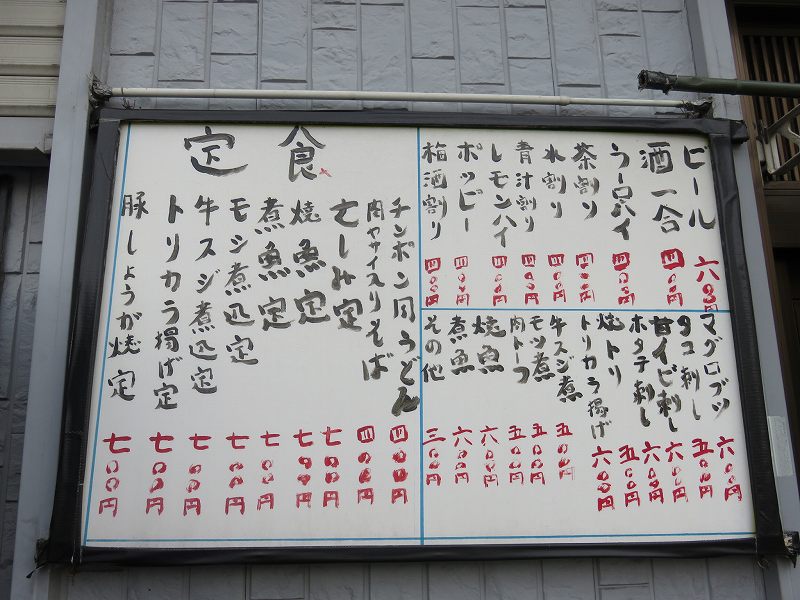 ビール 六〇〇円
酒一合 四〇〇円
ウーロハイ 四〇〇円
茶割り 四〇〇円
水割り 四〇〇円
青汁割り 四〇〇円
レモンハイ 四〇〇円
ホッピー 四〇〇円
梅酒割り 四〇〇円
マグロブツ 六〇〇円
タコ刺し 五〇〇円
甘イビ刺し 六〇〇円
ホタテ刺し 六〇〇円
焼トリ 五〇〇円
トリカラ揚げ 六〇〇円
牛スジ煮 五〇〇円
モツ煮 五〇〇円
肉トーフ 五〇〇円
焼魚 六〇〇円
煮魚 六〇〇円
その他 三〇〇円
定食
チンポン肉うどん 四〇〇円
肉ヤサイ入りそば 四〇〇円
さしみ定 七〇〇円
焼魚定 七〇〇円
煮魚定 七〇〇円
モツ煮込定 七〇〇円
牛スジ煮込定 七〇〇円
トリカラ揚げ定 七〇〇円
豚しょうが焼定 七〇〇円